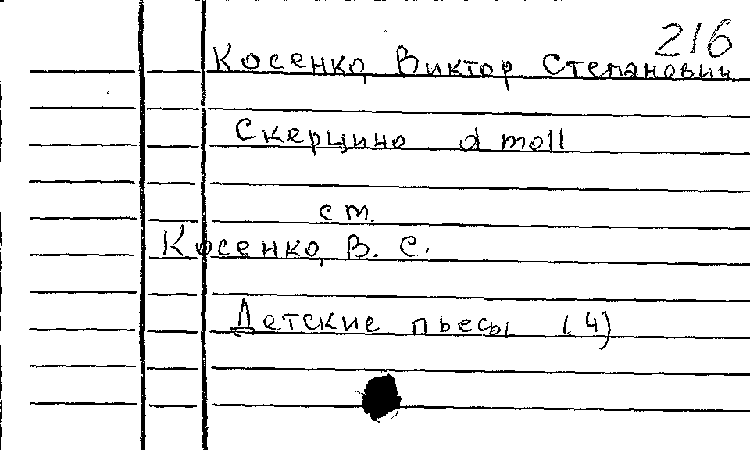 216
Косенко, Виктор Степанович
Скерцино d moll
ст.
Косенко, В. С.
Детские пьесы (4)